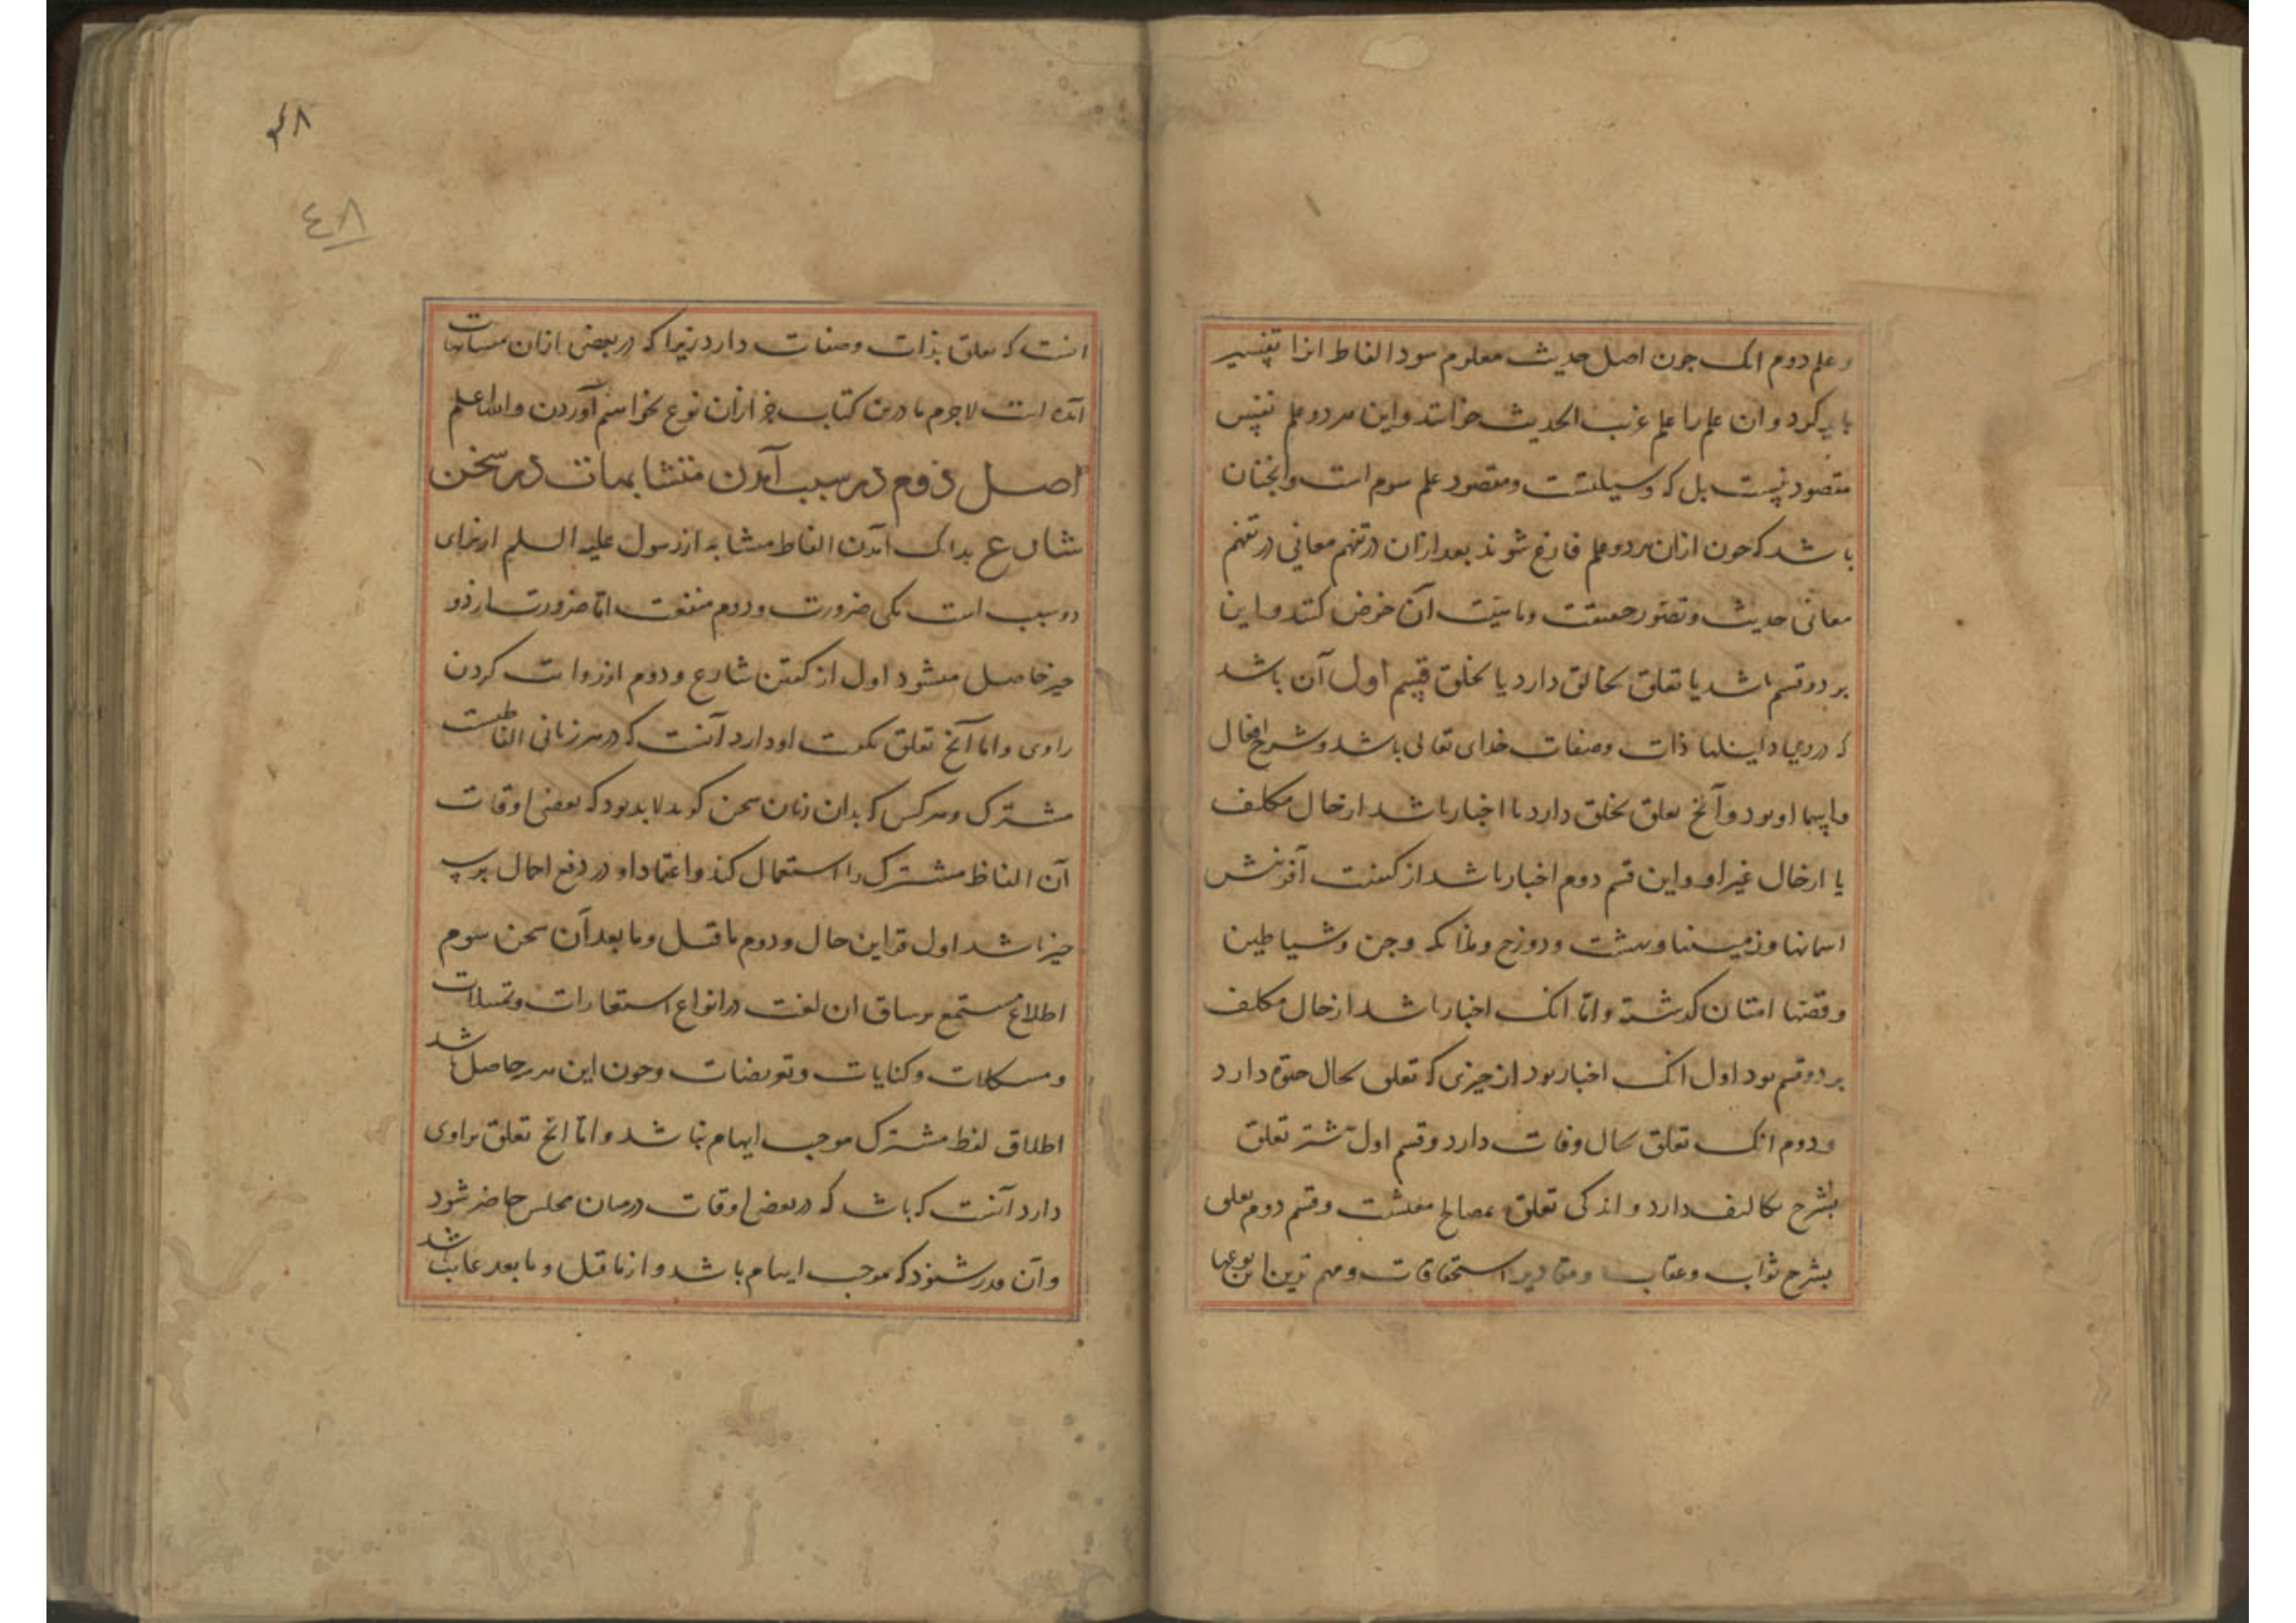 و علم دوم انک جون اصل حدیث معلوم سود الفاظ انرا تفسیر
باید کرد و ان علم را علم غریب الحدیث خوانند و این هر دو علم نفیس
مقصود نیست بل که وسیلتست و مقصود علم سوم است و انجنان
باشد که جون ازان هر دو علم فارغ شوند بعد ازان در تفهم معانی در تفهم
معانی حدیث و تصور حقیقت و ماهیت آن خوض کنند و این
بر دو قسم باشد یا تعلق بخالق دارد یا بخلق قسم اول آن باشد
که دروی ذات وصفات خدای تعالی باشد و شرح افعال
و اسما او بود و آنخ تعلق بخلق دارد یا اخبار باشد از حال مکلف
یا ازحال غیر او و این قسم دوم اخبار باشد از کیفیت آفرینش
اسمانها و زمینها و بهشت و دوزخ و ملائکه و جن و شیاطین
و قصها امتان کذشته و امّا انک اخبار باشد از حال مکلف
بر دو قسم بود اول انک اخبار بود از چیزی که تعلق بحال حیوة دارد
و دوم انک تعلق بحال وفات دارد و قسم اول بیشتر تعلق
بشرح تکالیف دارد و اندکی تعلق بمصالح معیشت و قسم دوم تعلق
بشرح ثواب و عقاب و مقادیر استحقاقات و مهم ترین این نوعها
۴۸
٤٨
انست که تعلق بذات و صفات دارد زیرا که در بعضی ازان متشابهات
آمده است لاجرم ما درین کتاب جز ازان نوع نخواهیم آوردن والله اعلم
اصل دوم در سبب آمدن متشابهات در سخن
شارع بدانک آمدن الفاظ متشابه از رسول علیه السلم از برای
دو سبب است یکی ضرورت و دوم منفعت امّا ضرورت از دو
چیز حاصل میشود اول از کفتن شارع و دوم از روایت کردن
راوی و اما آنخ تعلق بکفت او دارد آنست که در هر زبانی الفاظیست
مشترک و هر کس که بدان زبان سخن کوید لابد بود که بعضی اوقات
آن الفاظ مشترک را استعمال کند و اعتماد او در دفع احتمال بر سه
چیز باشد اول قراین حال و دوم ما قبل و ما بعد آن سخن سوم
اطلاع مستمع بر سیاق ان لغت در انواع استعارات و تمثیلات
و مشکلات و کنایات و تعریضات و جون این هر سه حاصل باشد
اطلاق لفظ مشترک موجب ایهام نباشد و امّا انخ تعلق براوی
دارد آنست که باشد که در بعضی اوقات در میان مجلس حاضر شود
و آن قدر شنود که موجب ایهام باشد و از ما قبل و ما بعد غایب باشد